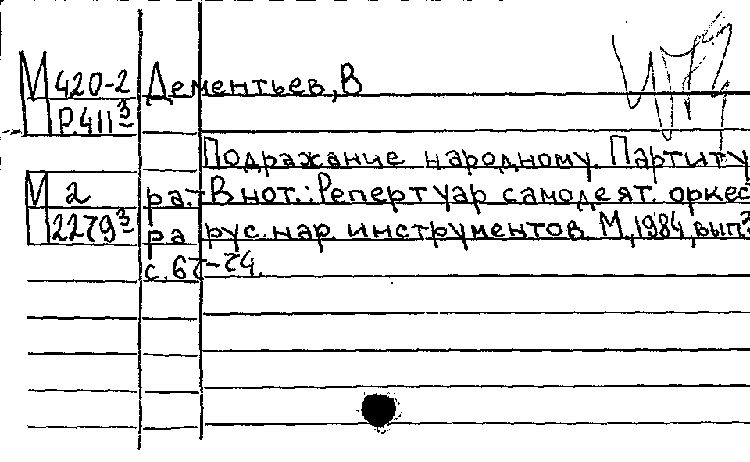 М 420-2 Дементьев, В
Р411³
Подражание народному. Партиту
М 2 ра.-В нот.: Репертуар самодеят. оркес
2279³ ра рус. нар. инструментов. М., 1984, вып3
с. 67-74.